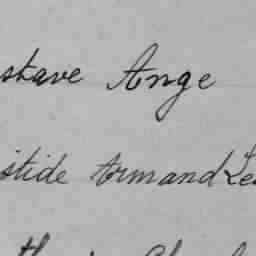 stave Ange
istide Armand Le